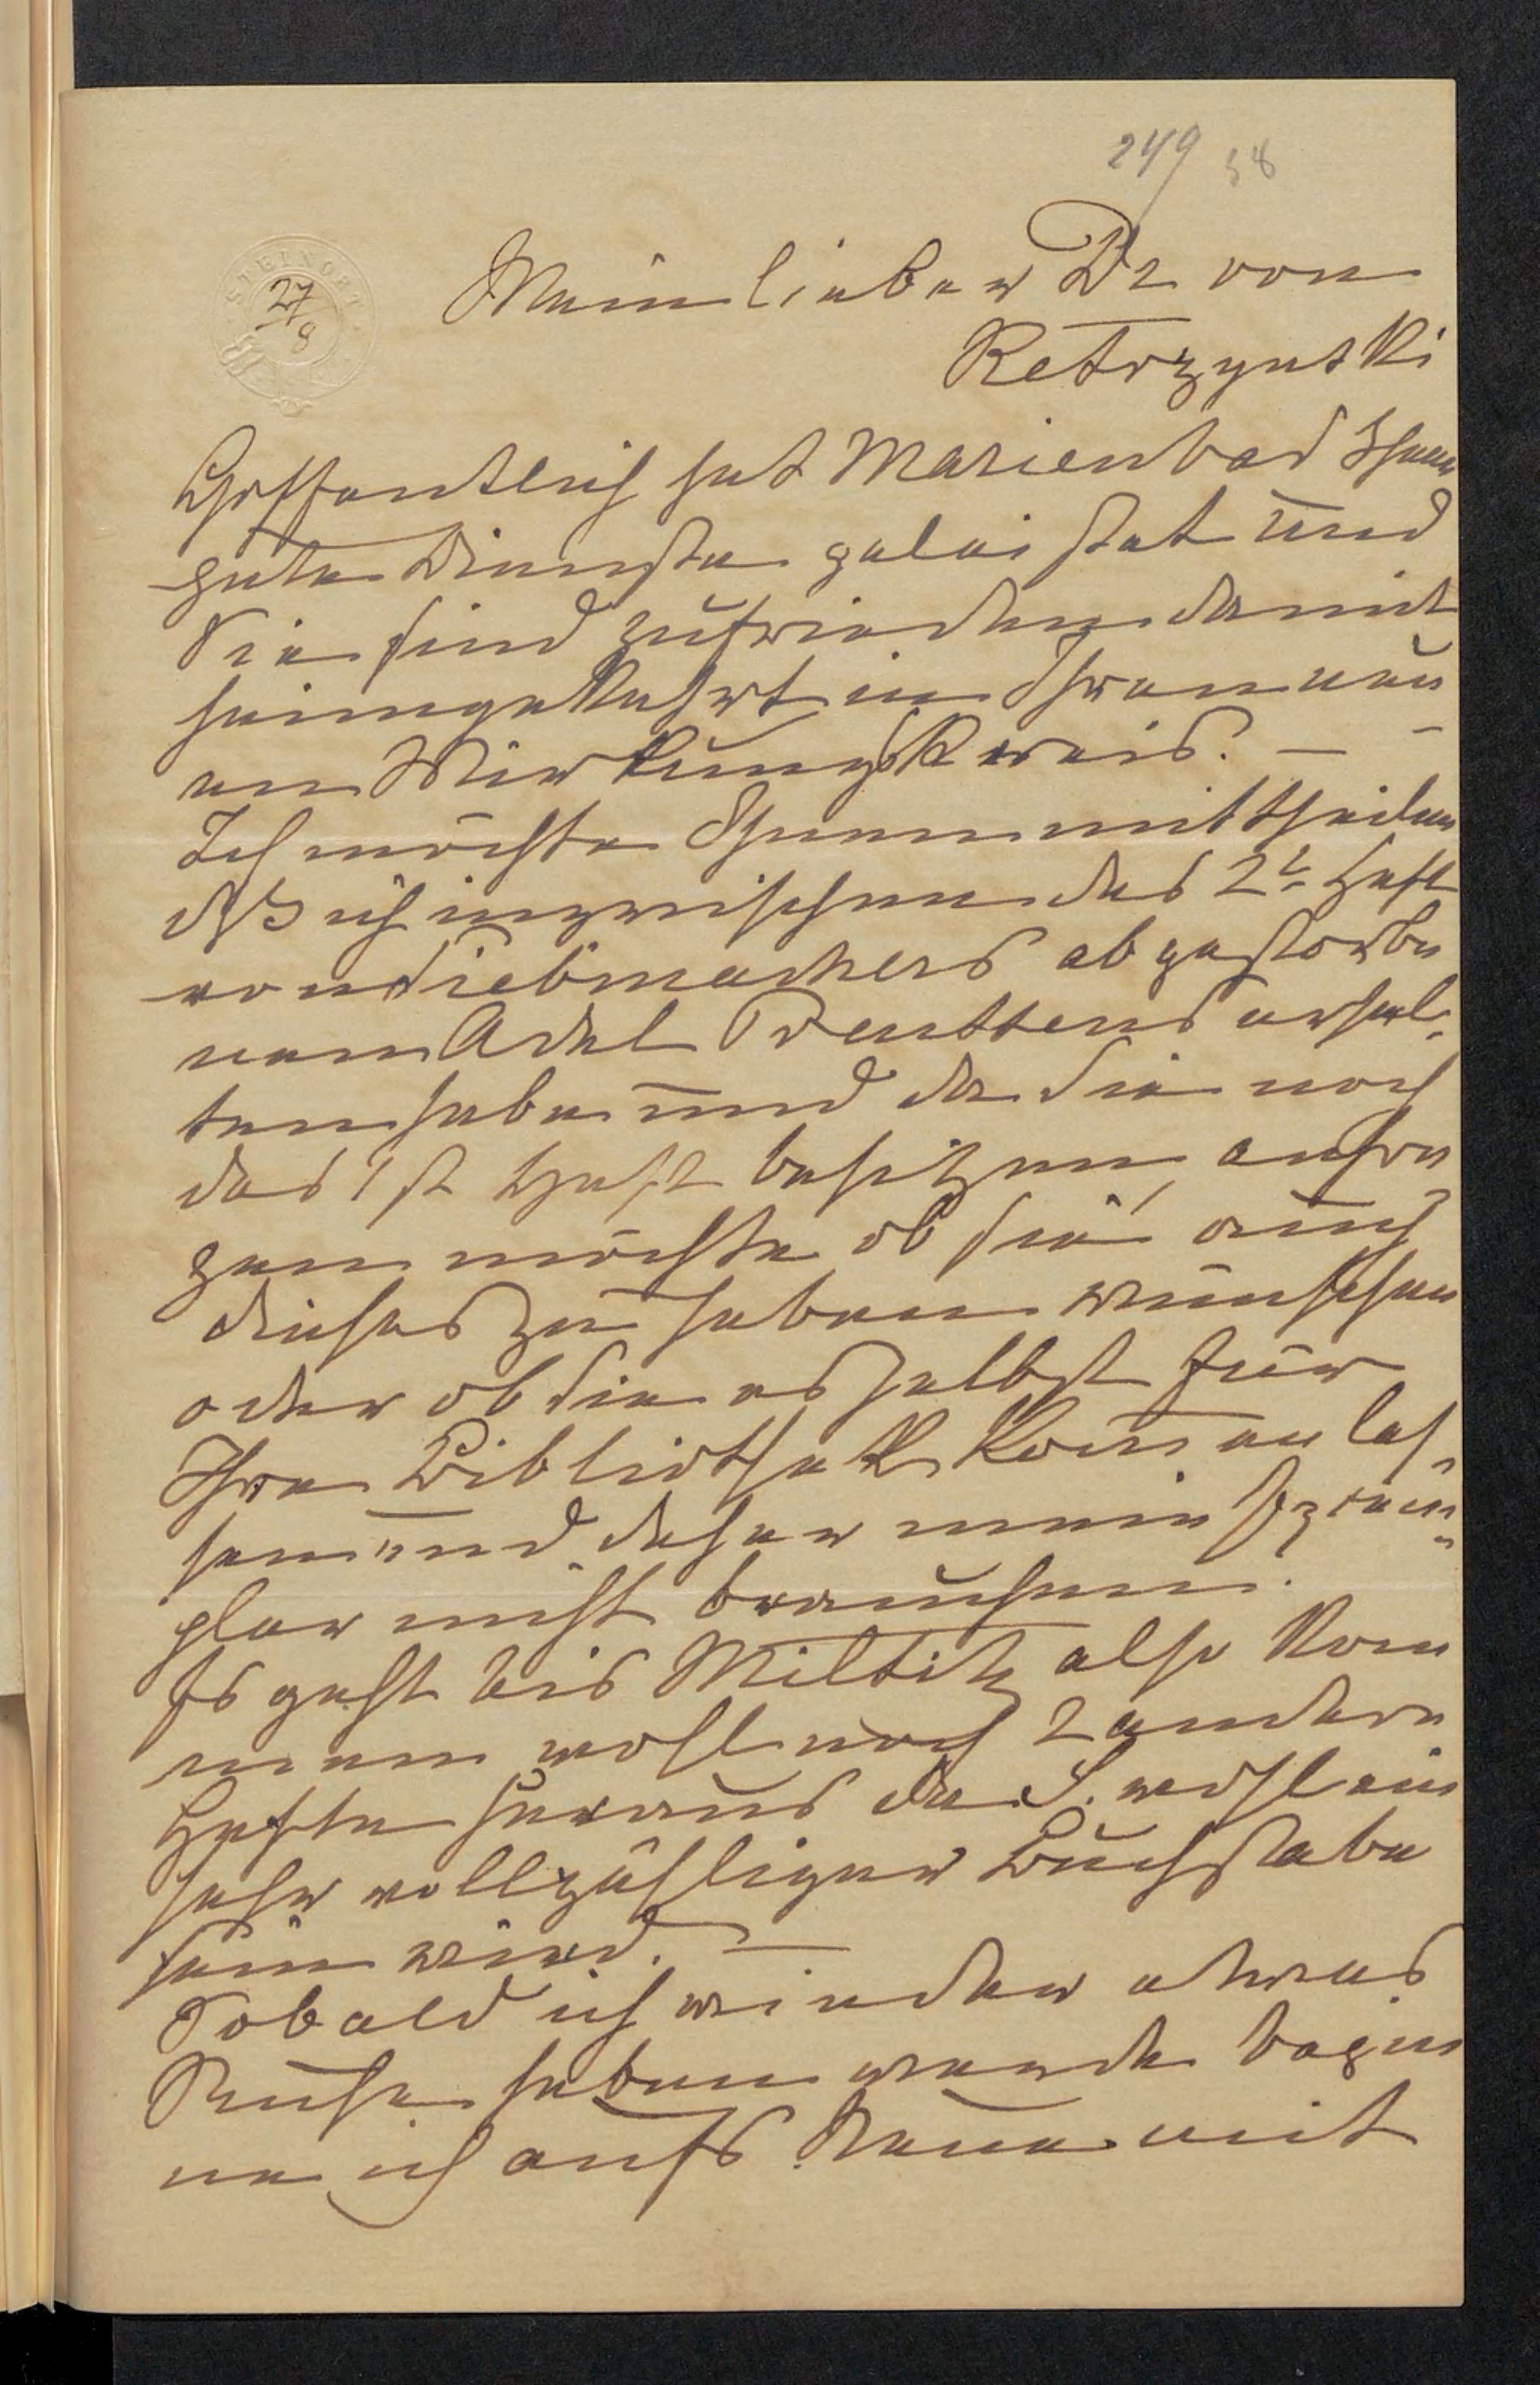 249 58
STEINORT
27/8
Mein lieber Dr von
Ketrzynski
Hoffentlich hat Marienbad Ihnen
gute Dienste geleistet und
Sie sind zufrieden damit
heimgekehrt in Ihren neu
en Wirkungskreis. —
Ich möchte Ihnen mittheilen
daß ich inzwischen das 2te Heft
von Siebmachers abgestorbe
nem Adel Preuttens erhal-
ten habe und da Sie noch
das 1st Heft besitzen, anfra
gen möchte ob Sie auch
dieses zu haben wünschen
oder ob Sie es selbst für
Ihre Bibliothek komen las-
sen und daher mein Exem-
plar nicht brauchen.
Es geht bis Miltitz also kom
men wohl noch 2 andere
Hefte heraus da S. wohl ein
sehr vollzähliger Buchstabe
sein wird. —
Sobald ich wieder etwas
Ruhe haben werde begin
ne ich aufs Neue mit